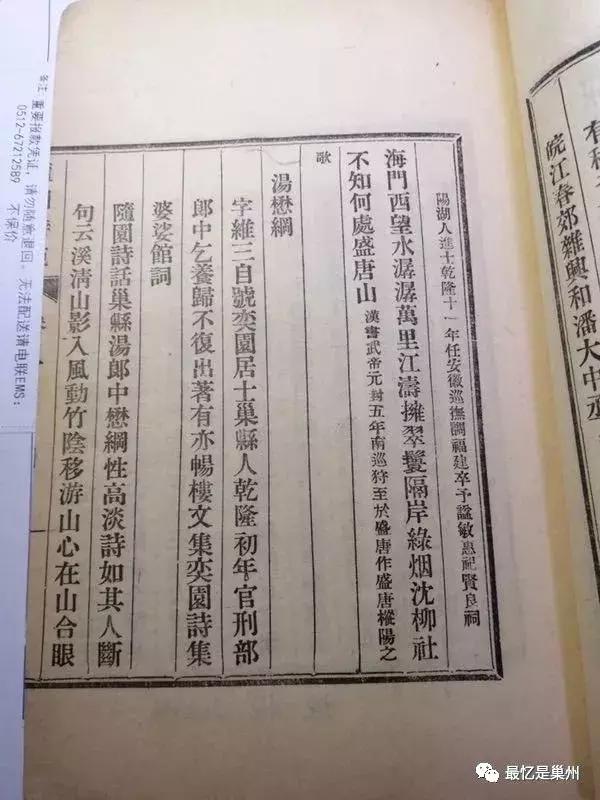 有
皖江春郊雜興和潘大中丞
陽湖人進士乾隆十一年任安徽巡撫調福建卒予諡敏惠祀賢良祠
海門西望水潺潺萬里江濤擁翠鬟隔岸綠烟沈柳社
不知何處盛唐山漢書武帝元封五年南巡狩至於盛唐作盛唐樅陽之
歌
湯懋綱
字維三自號奕園居士巢縣人乾隆初年官刑部
郎中乞養歸不復出著有亦暢樓文集奕園詩集
婆娑館詞
隨園詩話巢縣湯郎中懋綱性高淡詩如其人斷
句云溪淸山影入風動竹陰移游山心在山合眼
备注：重要报款凭证，请勿随意退回。无法配送请电联EMS：
0512-67212589
不保价
最忆是巢州